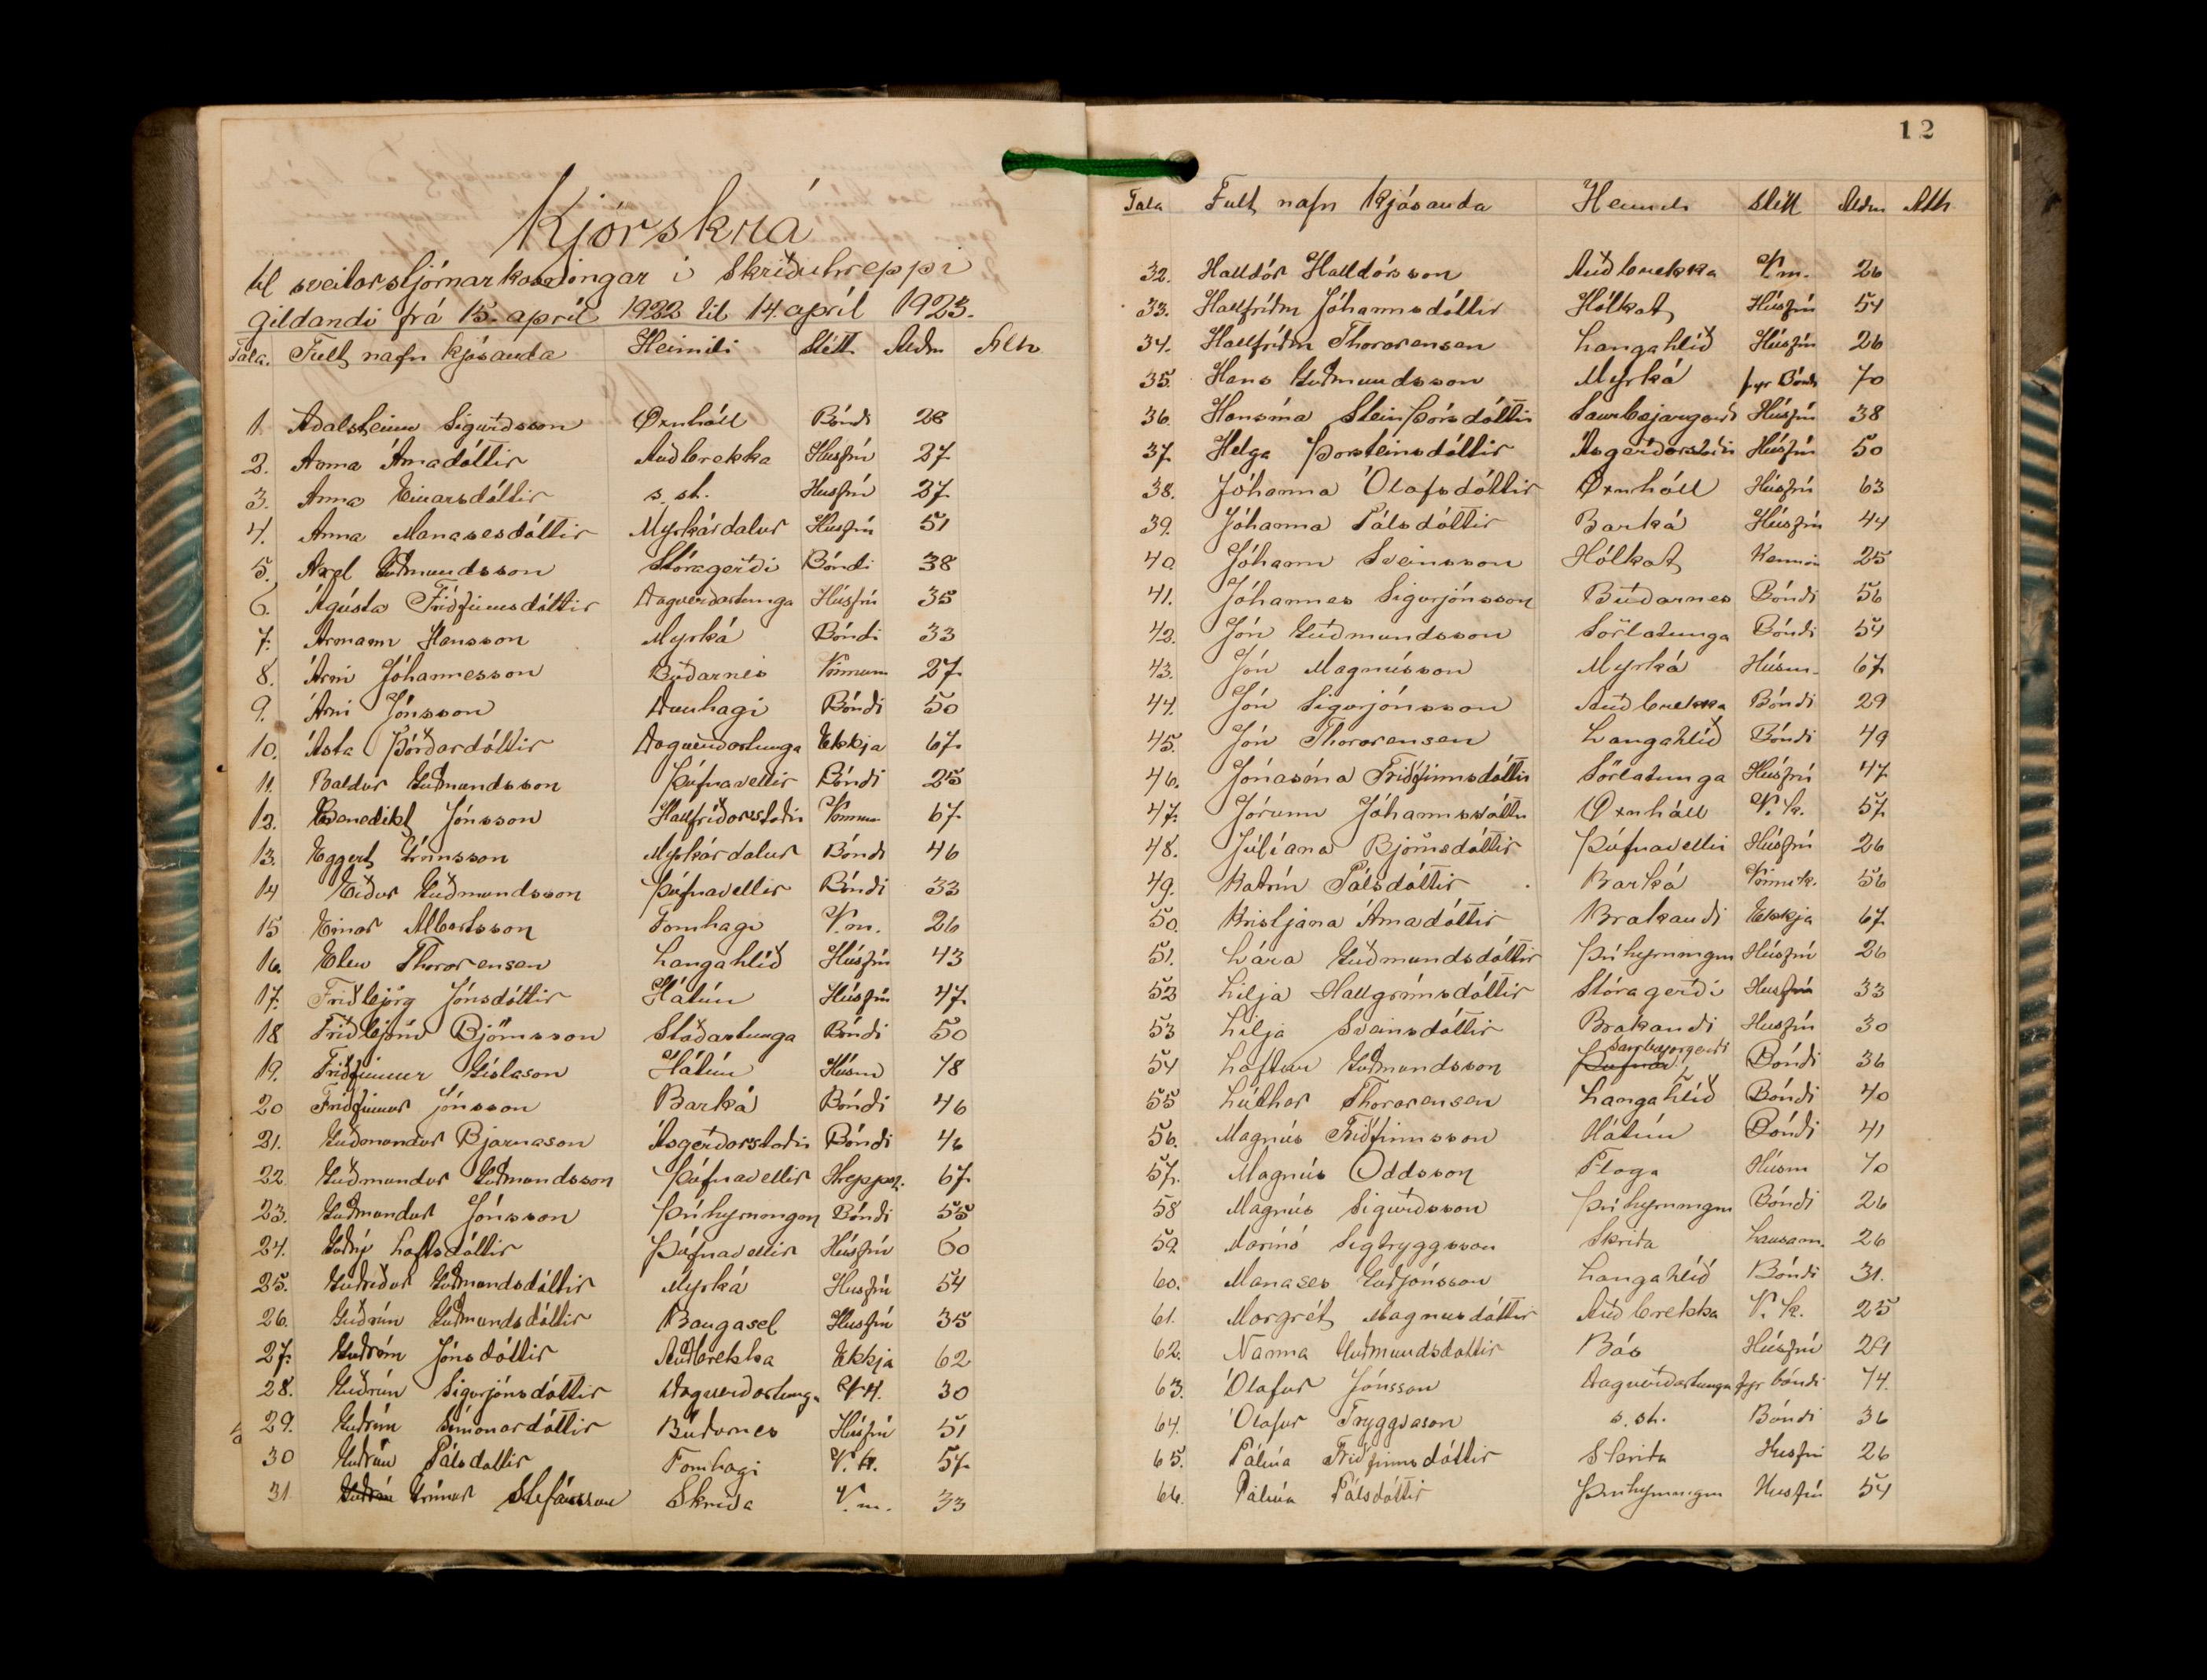 Kjörskrá
til sveitarstjórnarkosningar í Skriðuhreppi
gildandi frá 15. apríl 1922 til 14. apríl 1923.
Tala. Fult nafn kjósanda Heimili Stétt Aldur Ath
1. Aðalsteinn Sigurðsson Öxnhóll Bóndi 28
2. Anna Árnadóttir Auðbrekka Húsfrú 27
3. Anna Einarsdóttir s. st. Húsfrú 27
4. Anna Manasesdóttir Myrkárdalur Húsfrú 51
5. Axel Guðmundsson Stóragerði Bóndi 38
6. Ágústa Friðfinnsdóttir Dagverðartunga Húsfrú 35
7. Ármann Hansson Myrká Bóndi 33
8. Árni Jóhannesson Búðarnes Vinnum 27
9. Árni Jónsson Dunhagi Bóndi 50
10. Ásta Þórðardóttir Dagverðartunga Ekkja 67
11. Baldur Guðmundsson Þúfnavellir Bóndi 25
12. Benedikt Jónsson Hallfríðarstaðir Vinnum 67
13. Eggert Grímsson Myrkárdalur Bóndi 46
14 Eiður Guðmundsson Þúfnavellir Bóndi 33
15 Einar Albertsson Fornhagi V.m. 26
16. Elin Thorarensen Langahlíð Húsfrú 43
17. Friðbjörg Jónsdóttir Hátún Húsfrú 47
18 Friðbjörn Björnsson Staðartunga Bóndi 50
19. Friðfinnur Gíslason Hátún Húsm 78
20 Friðfinnur Jónsson Barká Bóndi 46
21. Guðmundur Bjarnason Ásgerðarstaðir Bóndi 46
22 Guðmundur Guðmundsson Þúfnavellir Hreppsn. 67
23. Guðmundur Jónsson Þríhyrningur Bóndi 55
24. Guðný Loftsdóttir Þúfnavellir Húsfrú 60
25. Guðríður Guðmundsdóttir Myrká Húsfrú 54
26. Guðrún Guðmundsdóttir Baugasel Húsfrú 35
27. Guðrún Jónsdóttir Auðbrekka Ekkja 62
28. Guðrún Sigurjónsdóttir Dagverðartunga V.k. 30
29. Guðrún Símonardóttir Búðarnes Húsfrú 51
30 Guðrún Pálsdóttir Fornhagi V.k. 57
31 Guðrún Grímur Stefánsson Skriða V.m. 33
12
Tala Fult nafn kjósanda Heimili Stétt Aldur Ath
32. Halldór Halldórsson Auðbrekka V.m. 26
33. Hallfríður Jóhannsdóttir Hólkot Húsfrú 54
34. Hallfríður Thorarensen Langahlíð Húsfrú 26
35. Hans Guðmundsson Myrká fyr Bóndi 70
36. Hansína Steinþórsdóttir Saurbæjargerði Húsfrú 38
37. Helga Þorsteinsdóttir Ásgerðarstaðir Húsfrú 50
38. Jóhanna Ólafsdóttir Öxnhóll Húsfrú 63
39. Jóhanna Pálsdóttir Barká Húsfrú 44
40 Jóhann Sveinsson Hólkot Kennari 25
41. Jóhannes Sigurjónsson Búðarnes Bóndi 56
42. Jón Guðmundsson Sörlatunga Bóndi 54
43. Jón Magnússon Myrká Húsm. 67
44. Jón Sigurjónsson Auðbrekka Bóndi 29
45. Jón Thorarensen Langahlíð Bóndi 49
46. Jónasína Friðfinnsdóttir Sörlatunga Húsfrú 47
47. Jórunn Jóhannsdóttir Öxnhóll V.k. 57
48. Júlíana Björnsdóttir Þúfnavellir Húsfrú 26
49. Katrín Pálsdóttir Barká Vinnuk. 56
50. Kristjana Árnadóttir Brakandi Ekkja 67
51. Lára Guðmundsdóttir Þríhyrningur Húsfrú 26
52 Lilja Hallgrímsdóttir Stóragerði Húsfrú 33
53 Lilja Sveinsdóttir Brakandi Húsfrú 30
54 Loftur Guðmundsson Þúfnav. Saurbæjargerði Bóndi 36
55 Lúther Thorarensen Langahlíð Bóndi 40
56. Magnús Friðfinnsson Hátún Bóndi 41
57. Magnús Oddsson Flaga Húsm 70
58 Magnús Sigurðsson Þríhyrningur Bóndi 26
59. Marinó Sigtryggsson Skriða Lausam. 26
60. Manases Guðjónsson Langahlíð Bóndi 31.
61. Margrét Magnúsdóttir Auðbrekka V.k. 25
62. Nanna Guðmundsdóttir Bás Húsfrú 29
63. Ólafur Jónsson Dagverðartunga fyr bóndi 74.
64. Ólafur Tryggvason s. st. Bóndi 36
65. Pálína Friðfinnsdóttir Skriða Húsfrú 26
66. Pálína Pálsdóttir Þríhyrningur Húsfrú 54